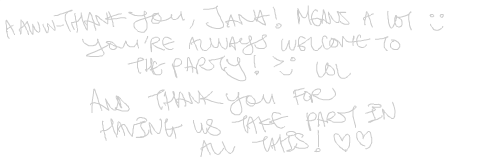 AAWW-THANK YOU, JANA! MEANS A LOT :)
YOU'RE ALWAYS WELCOME TO
THE PARTY! >:) LOL
AND THANK YOU FOR
HAVING US TAKE PART IN
ALL THIS! ♡♡